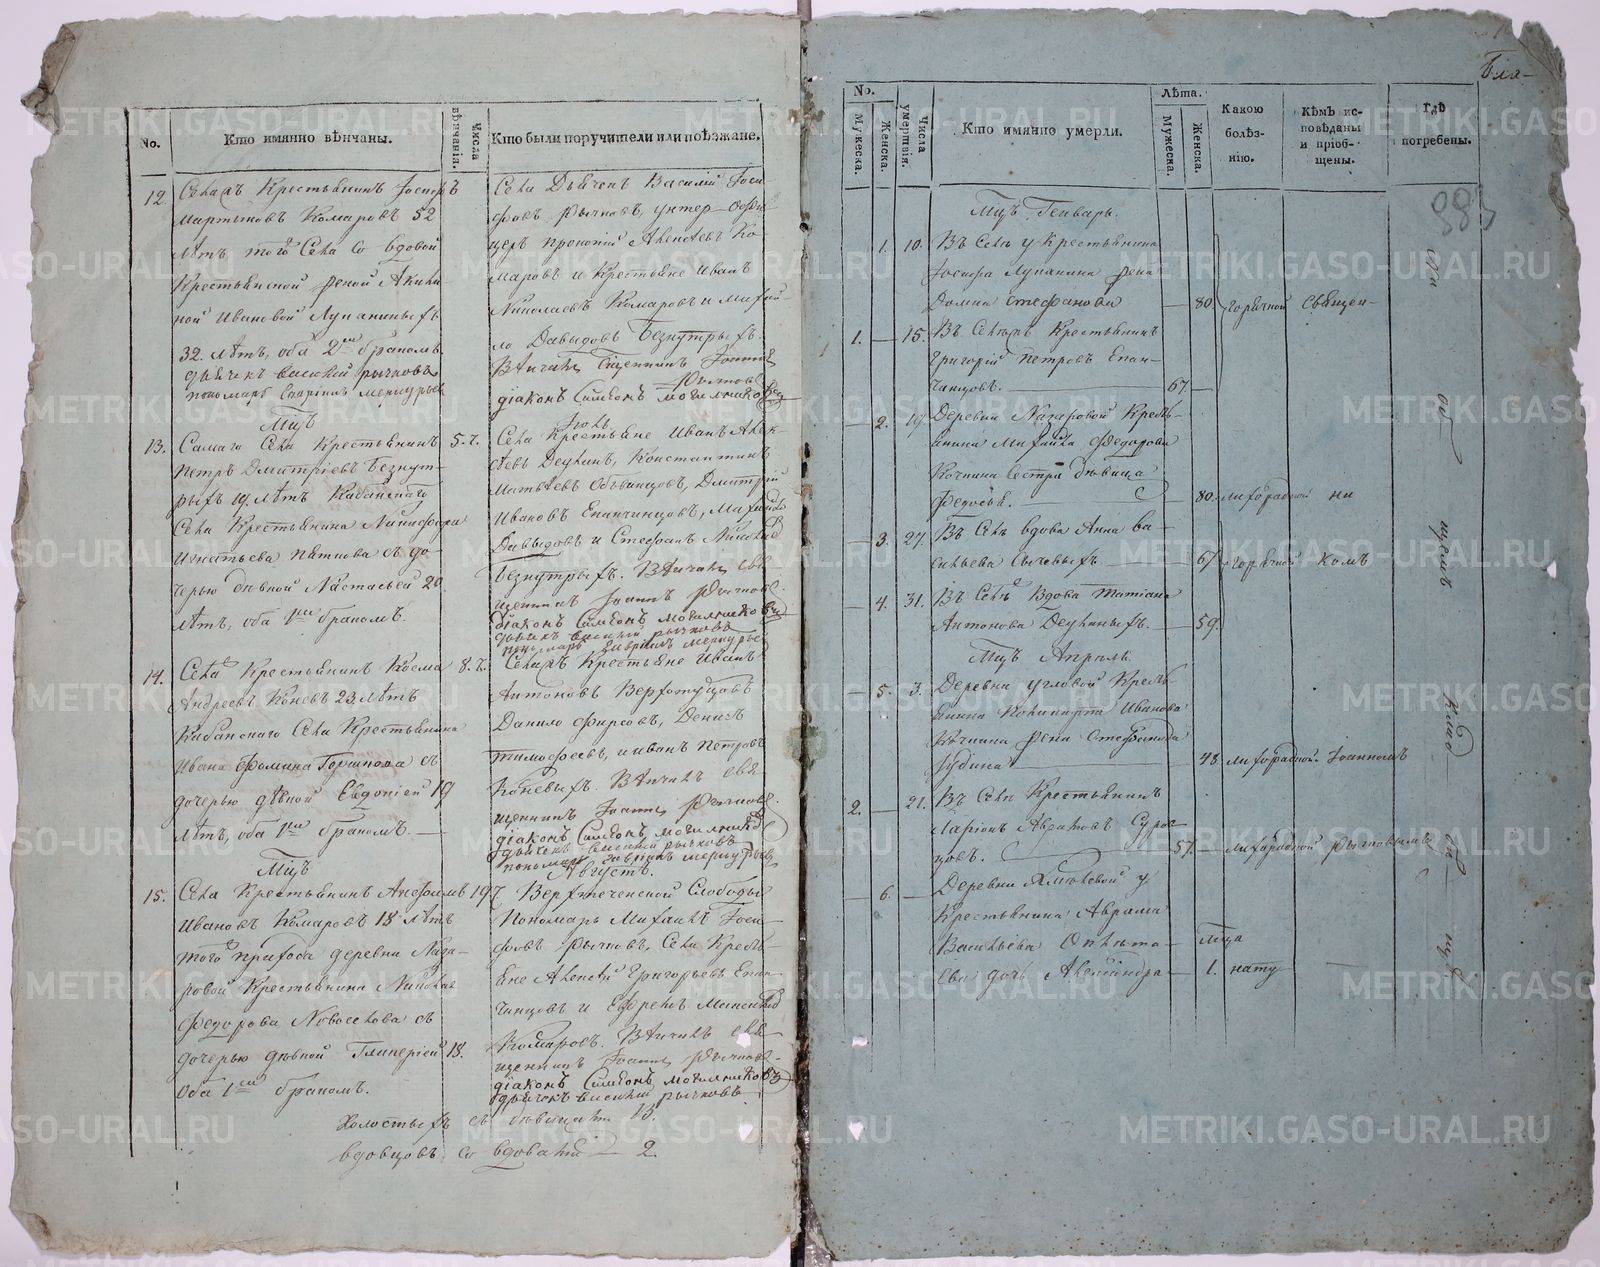 No.
Кто имянно вѣнчаны.
Числа вѣнчанія.
Кто были поручители или поѣзжане.
12.
Села Крестьянинъ Іосифъ
6
Мартыновъ Комаровъ 52
лѣтъ, того Села со вдовой
Крестьянской женой Акили-
ной Ивановой Лупаниныхъ
32. лѣтъ, оба 2мъ бракомъ.
дьячекъ василій рычковъ
пономарь Гаврiилъ меркурьев
Села Дьячекъ Василій Іоси-
фовъ Рычковъ, унтер-офи-
церъ Прокопій Алексѣевъ Ко-
маровъ и Крестьяне Иванъ
Николаевъ Комаровъ и Михай-
ло Давыдовъ Безнутрыхъ.
Вѣнчалъ Священникъ Іоаннъ
Рычков
діаконъ Симеонъ могильников
Мцъ
Іюль
13.
Самаго Села Крестьянинъ
5. ч.
Петръ Дмитріевъ Безнут-
рыхъ 19. лѣтъ Кабанскаго
Села Крестьянина Никифора
Игнатьева Пяткова съ до-
черью дѣвкой Настасьей 20.
лѣтъ, оба 1мъ бракомъ.
Села Крестьяне Иванъ Алек-
сѣевъ Деулинъ, Константинъ
Матвѣевъ Обвинцовъ, Дмитрій
Ивановъ Епанчинцовъ, Михайло
Давыдовъ и Стефанъ Николаевъ
Безнутрыхъ. Вѣнчалъ свя-
щенникъ Іоаннъ Рычков
діаконъ Симеонъ могильников
дьячекъ василій рычковъ
пономарь гаврiилъ меркурьев
14.
Села Крестьянинъ Косма
8. ч.
Андреевъ Коневъ 23 лѣтъ
Кабанскаго Села Крестьянина
Ивана Фомина Горшкова съ
дочерью дѣвкой Евдокіей 19
лѣтъ, оба 1мъ бракомъ.
Села Крестьяне Иванъ
Антоновъ Верхотурцовъ
Данило Фирсовъ, Денисъ
Тимофеевъ, и иванъ Петровъ
Коневыхъ. Вѣнчалъ свя-
щенникъ Іоаннъ Рычков.
діаконъ Симеонъ могильников
дьячекъ василій рычковъ
пономарь гаврiилъ меркурьев
Мцъ
Августъ.
15.
Села Крестьянинъ Анфимъ
19
Ивановъ Комаровъ 18 лѣтъ
того прихода деревни Наза-
ровой Крестьянина Николая
Федорова Новоселова съ
дочерью дѣвкой Гликеріей 18.
оба 1мъ бракомъ.
Верхтеченской Слободы
Пономарь Михаилъ Іоси-
фовъ Рычковъ, Села Кресть-
яне Алексѣй Григорьевъ Епан-
чинцовъ и Ефремъ Максимов
Комаровъ. Вѣнчалъ свя-
щенникъ Іоаннъ Рычков
діаконъ Симеонъ могильниковъ
дьячекъ василій рычковъ
Холостыхъ съ дѣвицами 13.
вдовцовъ со вдовами — 2.
Бла-
No.
Мужеска.
Женска.
Числа умертвія.
Кто имянно умерли.
Лѣта.
Мужеска.
Женска.
Какою болѣз-нію.
Кѣмъ ис-повѣданы и пріоб-щены.
Гдѣ погребены.
883
Мцъ Генварь.
1. 10. Въ Селѣ у Крестьянина
Іосифа Лупанина жена
Домна Стефанова — 80. горячкой Священ-
1. — 15. Въ Селѣ Крестьянинъ
Григорій Петровъ Епан-
чинцовъ. — 67. —
— 2. 19. Деревни Назаровой Кресть-
янина Михайла Федорова
Кочнина Сестра дѣвица
Федосья. — 80. лихорадкой ни
— 3. 27. Въ Селѣ вдова Анна ва-
сильева Сычевыхъ — 67 горячкой комъ
— 4. 31. Въ Селѣ Вдова Татіана
Антонова Деулиныхъ. — 59.
Мцъ Апрѣль
— 5. 3. Деревни Угловой Кресть-
янина Иванова
Кочнина жена Стефанида
— 48 лихорадкой Іоанномъ
2. — 21. Въ Селѣ Крестьянинъ
Ларіонъ Аврамовъ
цовъ. — 57. — лихорадкой Рычковымъ
— 6. — Деревни у
Крестьянина Аврама
Васильева
ева дочь Александра — 1. нату
на
об
щемъ
клад
би
щѣ